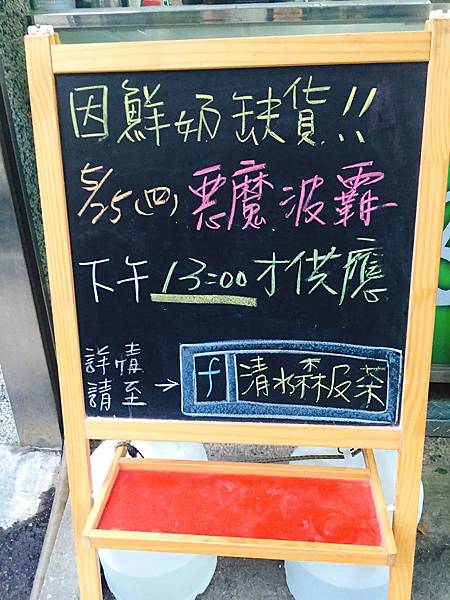 因鮮奶缺貨!!
5/25(四)惡魔波霸
下午13:00才供應
詳情
請至→
f 清水森反茶